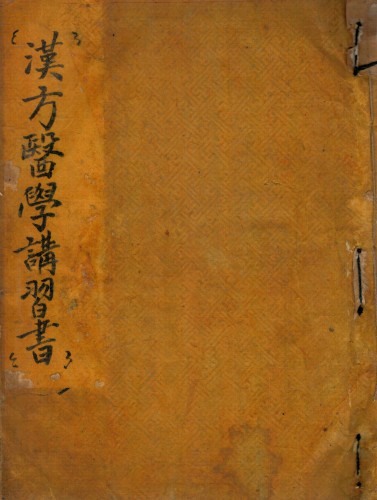 漢方醫學講習書